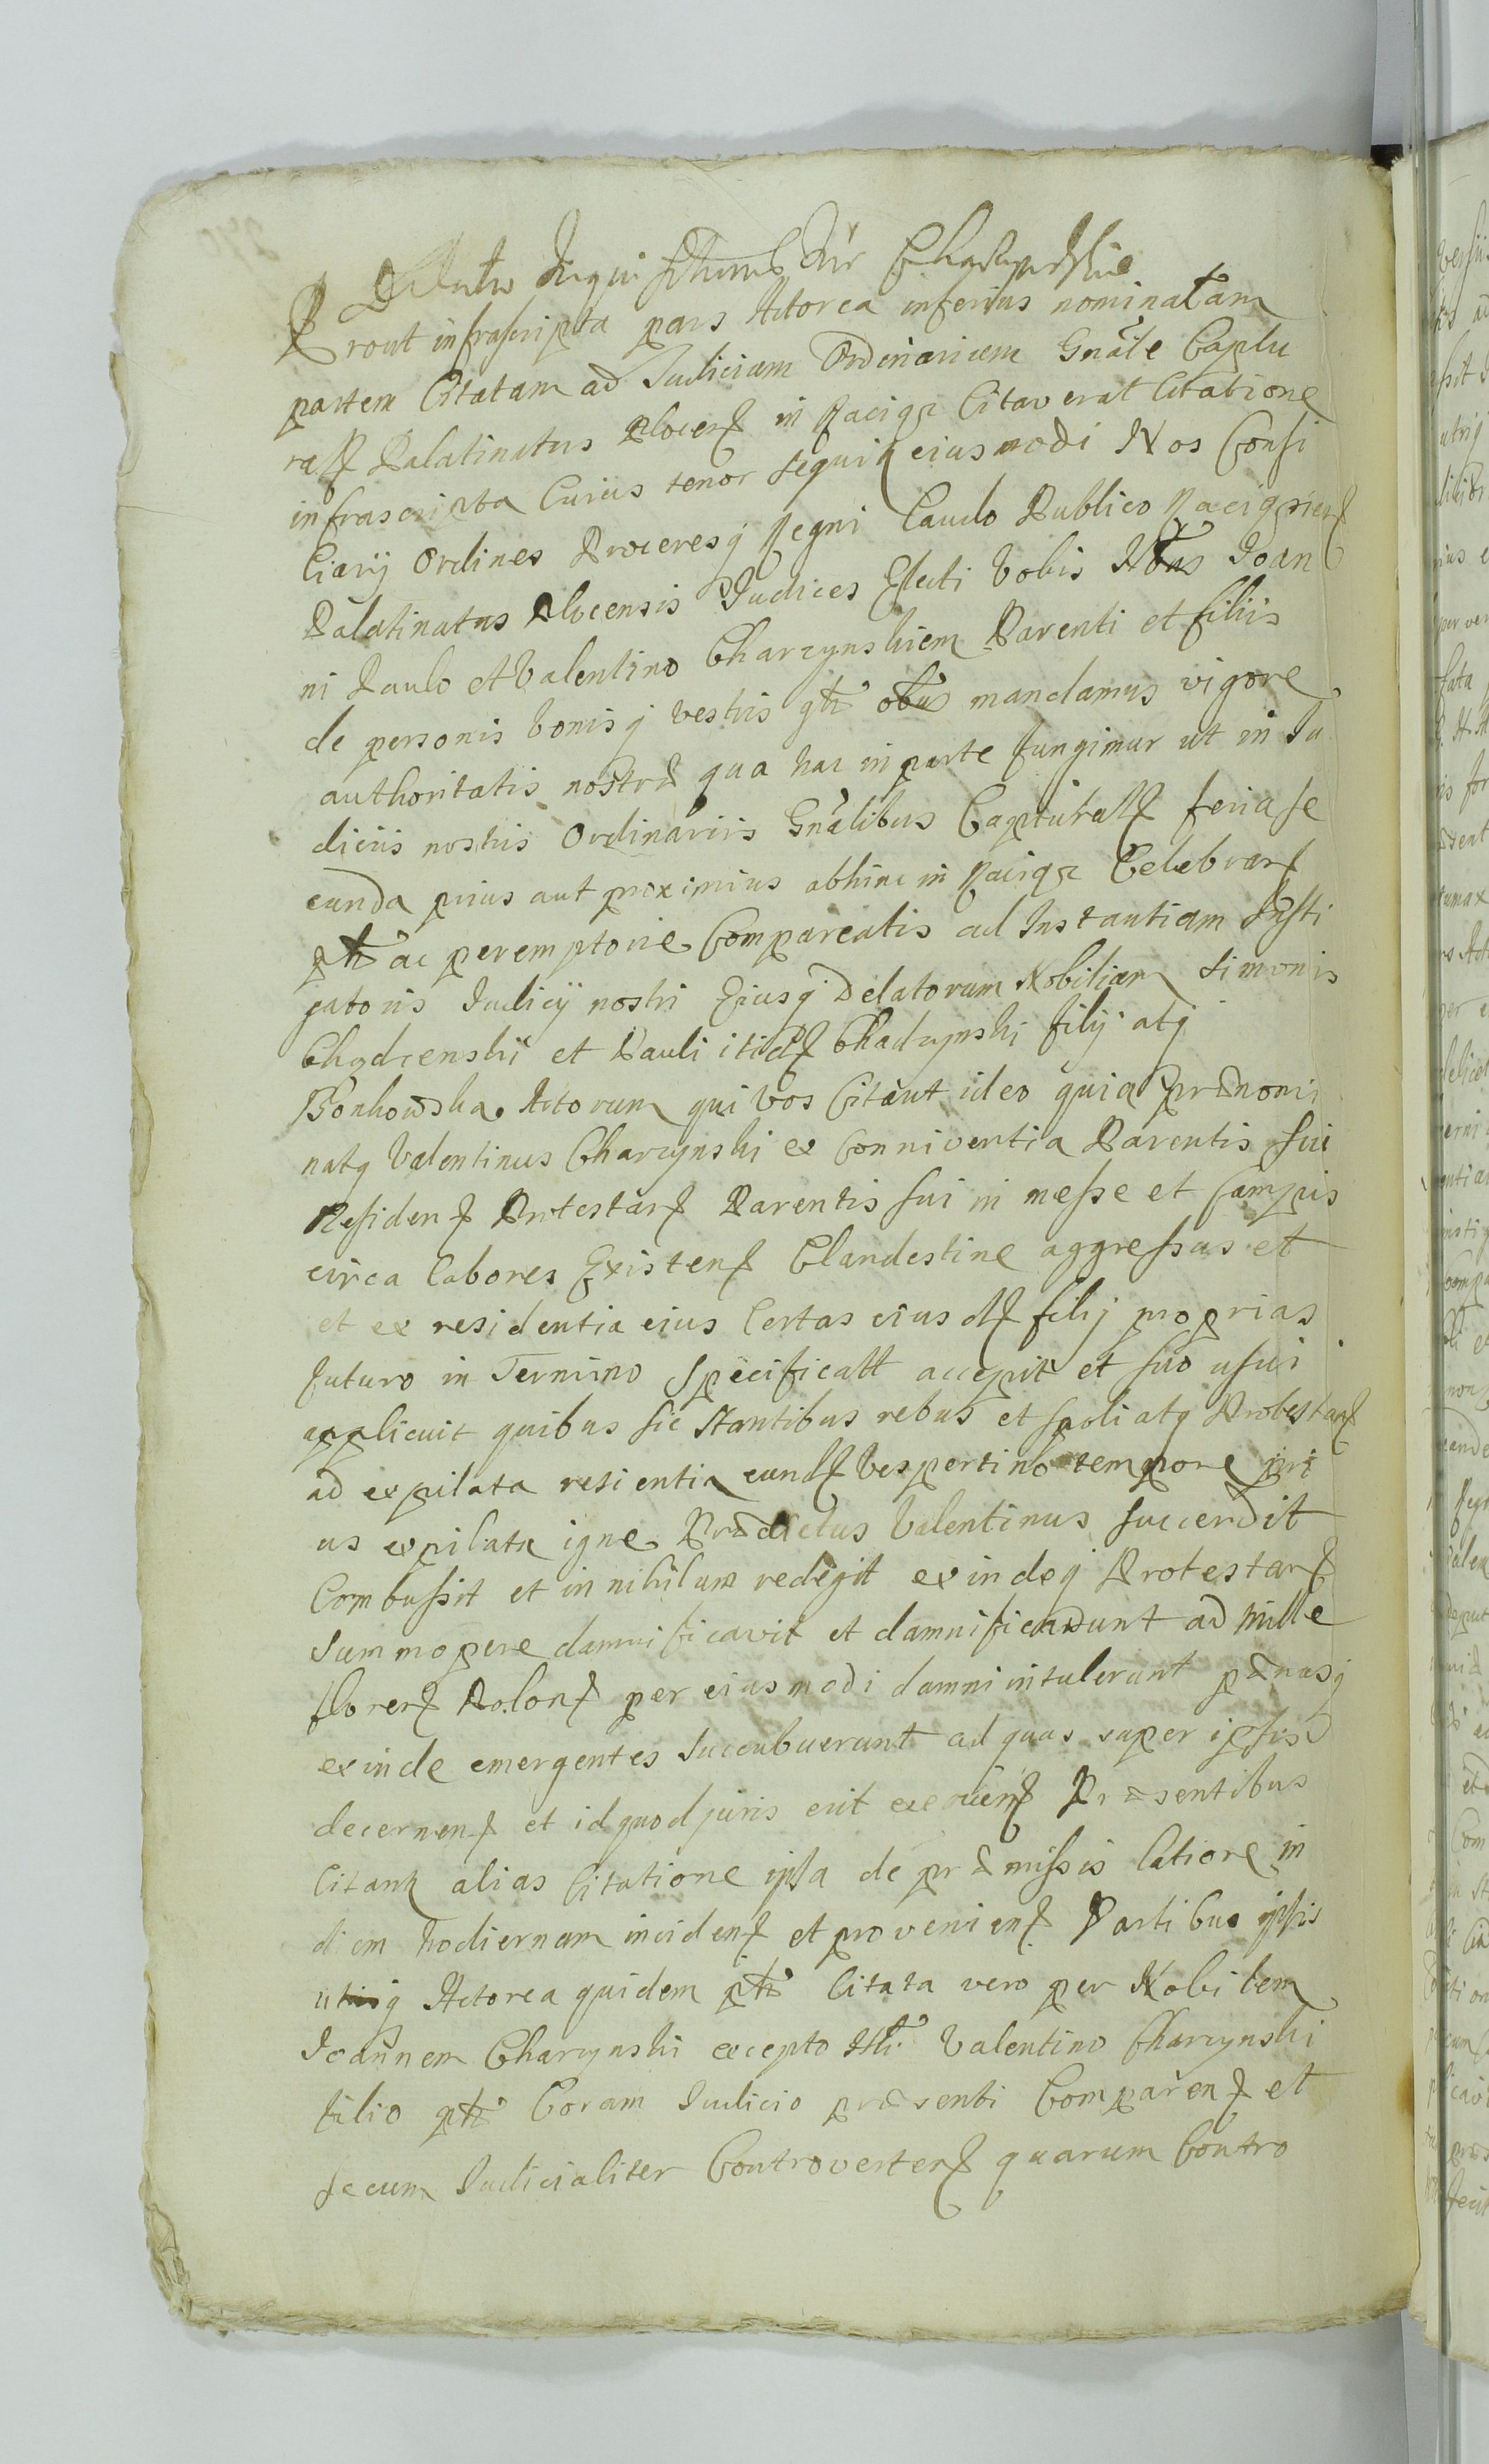 Prout infrascripta pars Actorea inferius nominatam
partem Citatam ad Judicium Ordinarium Gnãle Captu
rall Palatinatus Plocen in Raciąz Citaverat Citatione
infrascripta Cuius tenor sequit eiusmodi Nos Consi
liarij Ordines Proceresq Regni Laudo Publico Raciązien
Palatinatus Plocensis Judices Electi Vobis Nbus Joan
ni Paulo et Valentino Charzynskiem Parenti et filiis
de personis bonisq vestris gtr obus mandamus vigore
authoritatis nostræ qua hac in parte fungimur ut in Ju
diciis nostris Ordinariis Gnãlibus Capturall feria se
cunda prius aut proximius abhinc in Raciąz Celebran
ptr ac peremptorie Compareatis ad Instantiam Insti
gatoris Judicij nostri Eiusq Delatorum Nobilium Simonis
Chądzenski et Pauli itid Chadzynski filij atq
Bonkowska Actorum qui vos Citant ideo quia Prænomi
natq Valentinus Charzynski ex Conniventia Parentis sui
Residen Protestan Parentis sui in messe et Campis
circa labores Existen Clandestine aggressus et
et ex residentia eius Certas eiusd filij proprias
futuro in Termino Specificatt accepit et suo usui
applicuit quibus sic Stantibus rebus et spoliatq Protestan
ad expilata resientia eund Vespertino tempore pri
us expilata igne Prædictus Valentinus succendit
Combussit et in nihilum redegit exindeq Protestan
Summopere damnificavit et damnificarunt ad mille
floren Polon per eiusmodi damni intulerunt pænasq
exinde emergentes succubuerunt ad quas super ipsis
decernen et id quod juris erit exequen Præsentibus
Citant alias Citatione ipsa de præmissis latiore in
diem hodiernam inciden et provenien Partibus ipsis
utrisq Actorea quidem ptr Citata vero per Nobilem
Joannem Charzynski excepto Nli Valentino Charzynski
filio ptr Coram Judicio præsenti Comparen et
secum Judicialiter Controverten quarum Contro